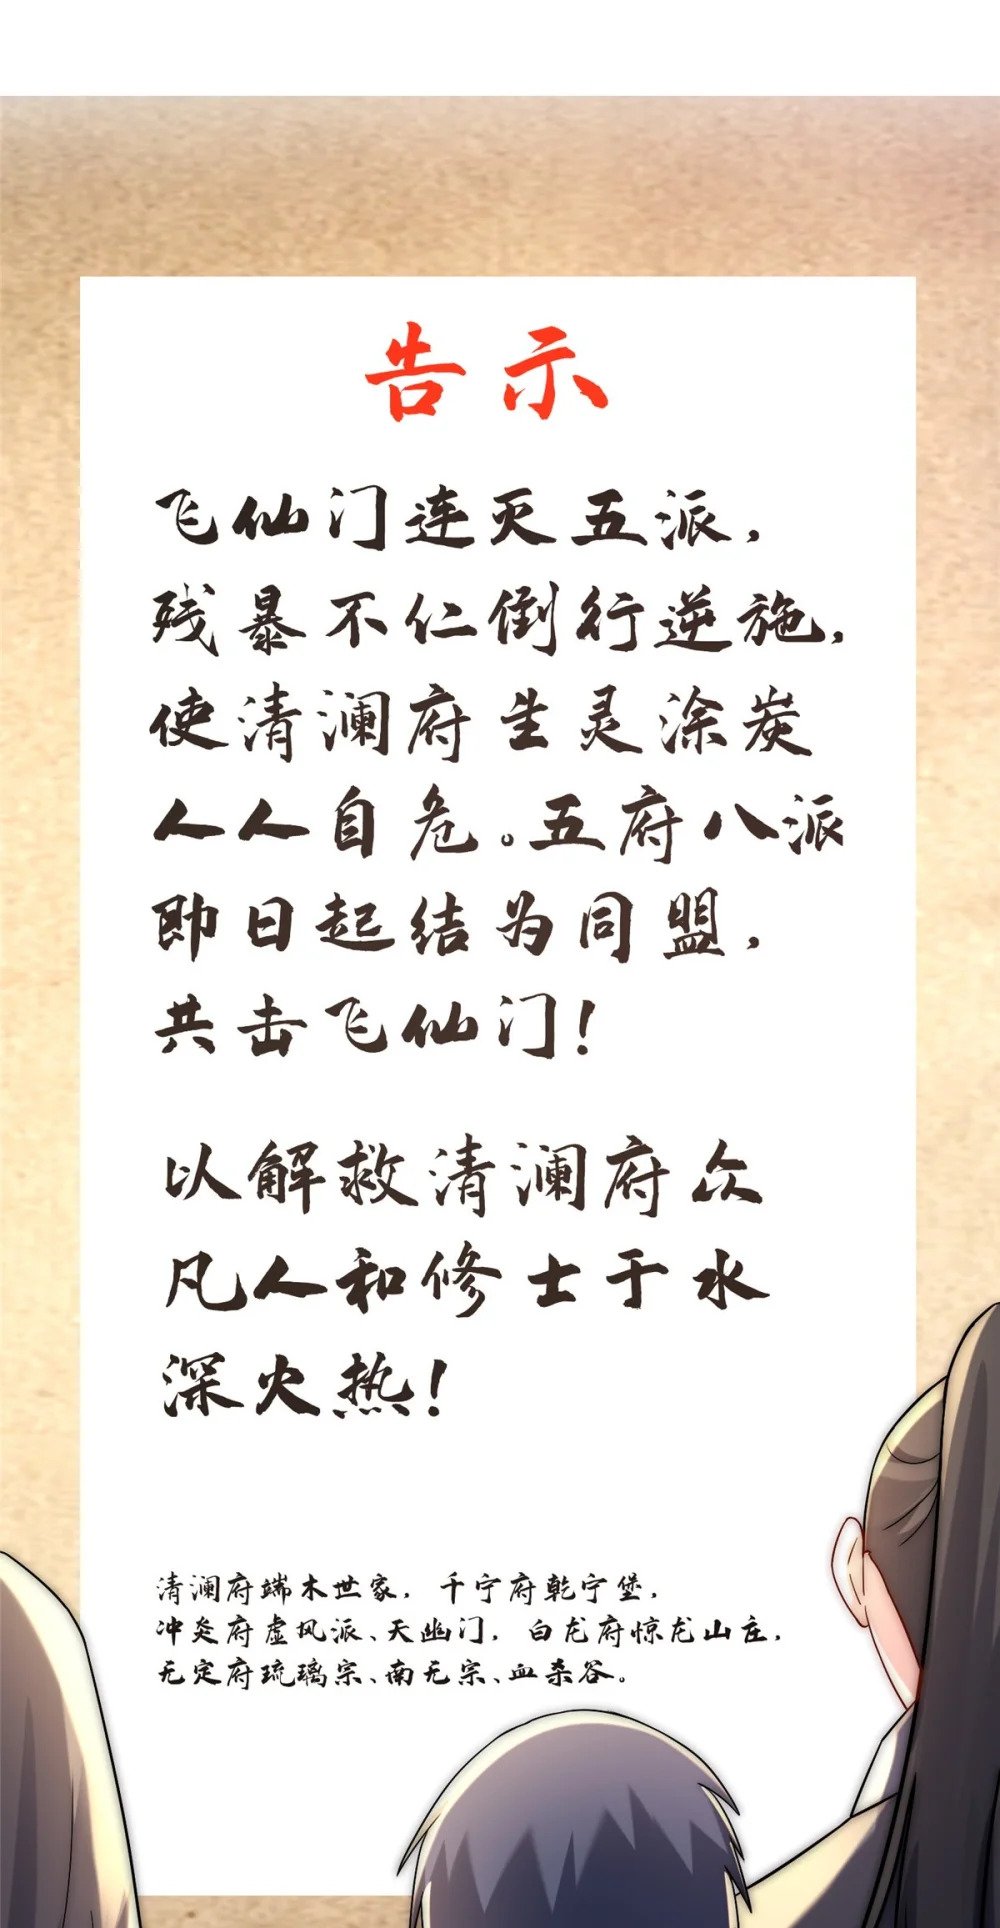 告示
飞仙门连灭五派，
残暴不仁倒行逆施，
使清澜府生灵涂炭
人人自危。五府八派
即日起结为同盟，
共击飞仙门！
以解救清澜府众
凡人和修士于水
深火热！
清澜府端木世家，千宁府乾宁堡，
冲炎府虚风派、天幽门，白龙府惊龙山庄，
无定府琉璃宗、南无宗、血杀谷。